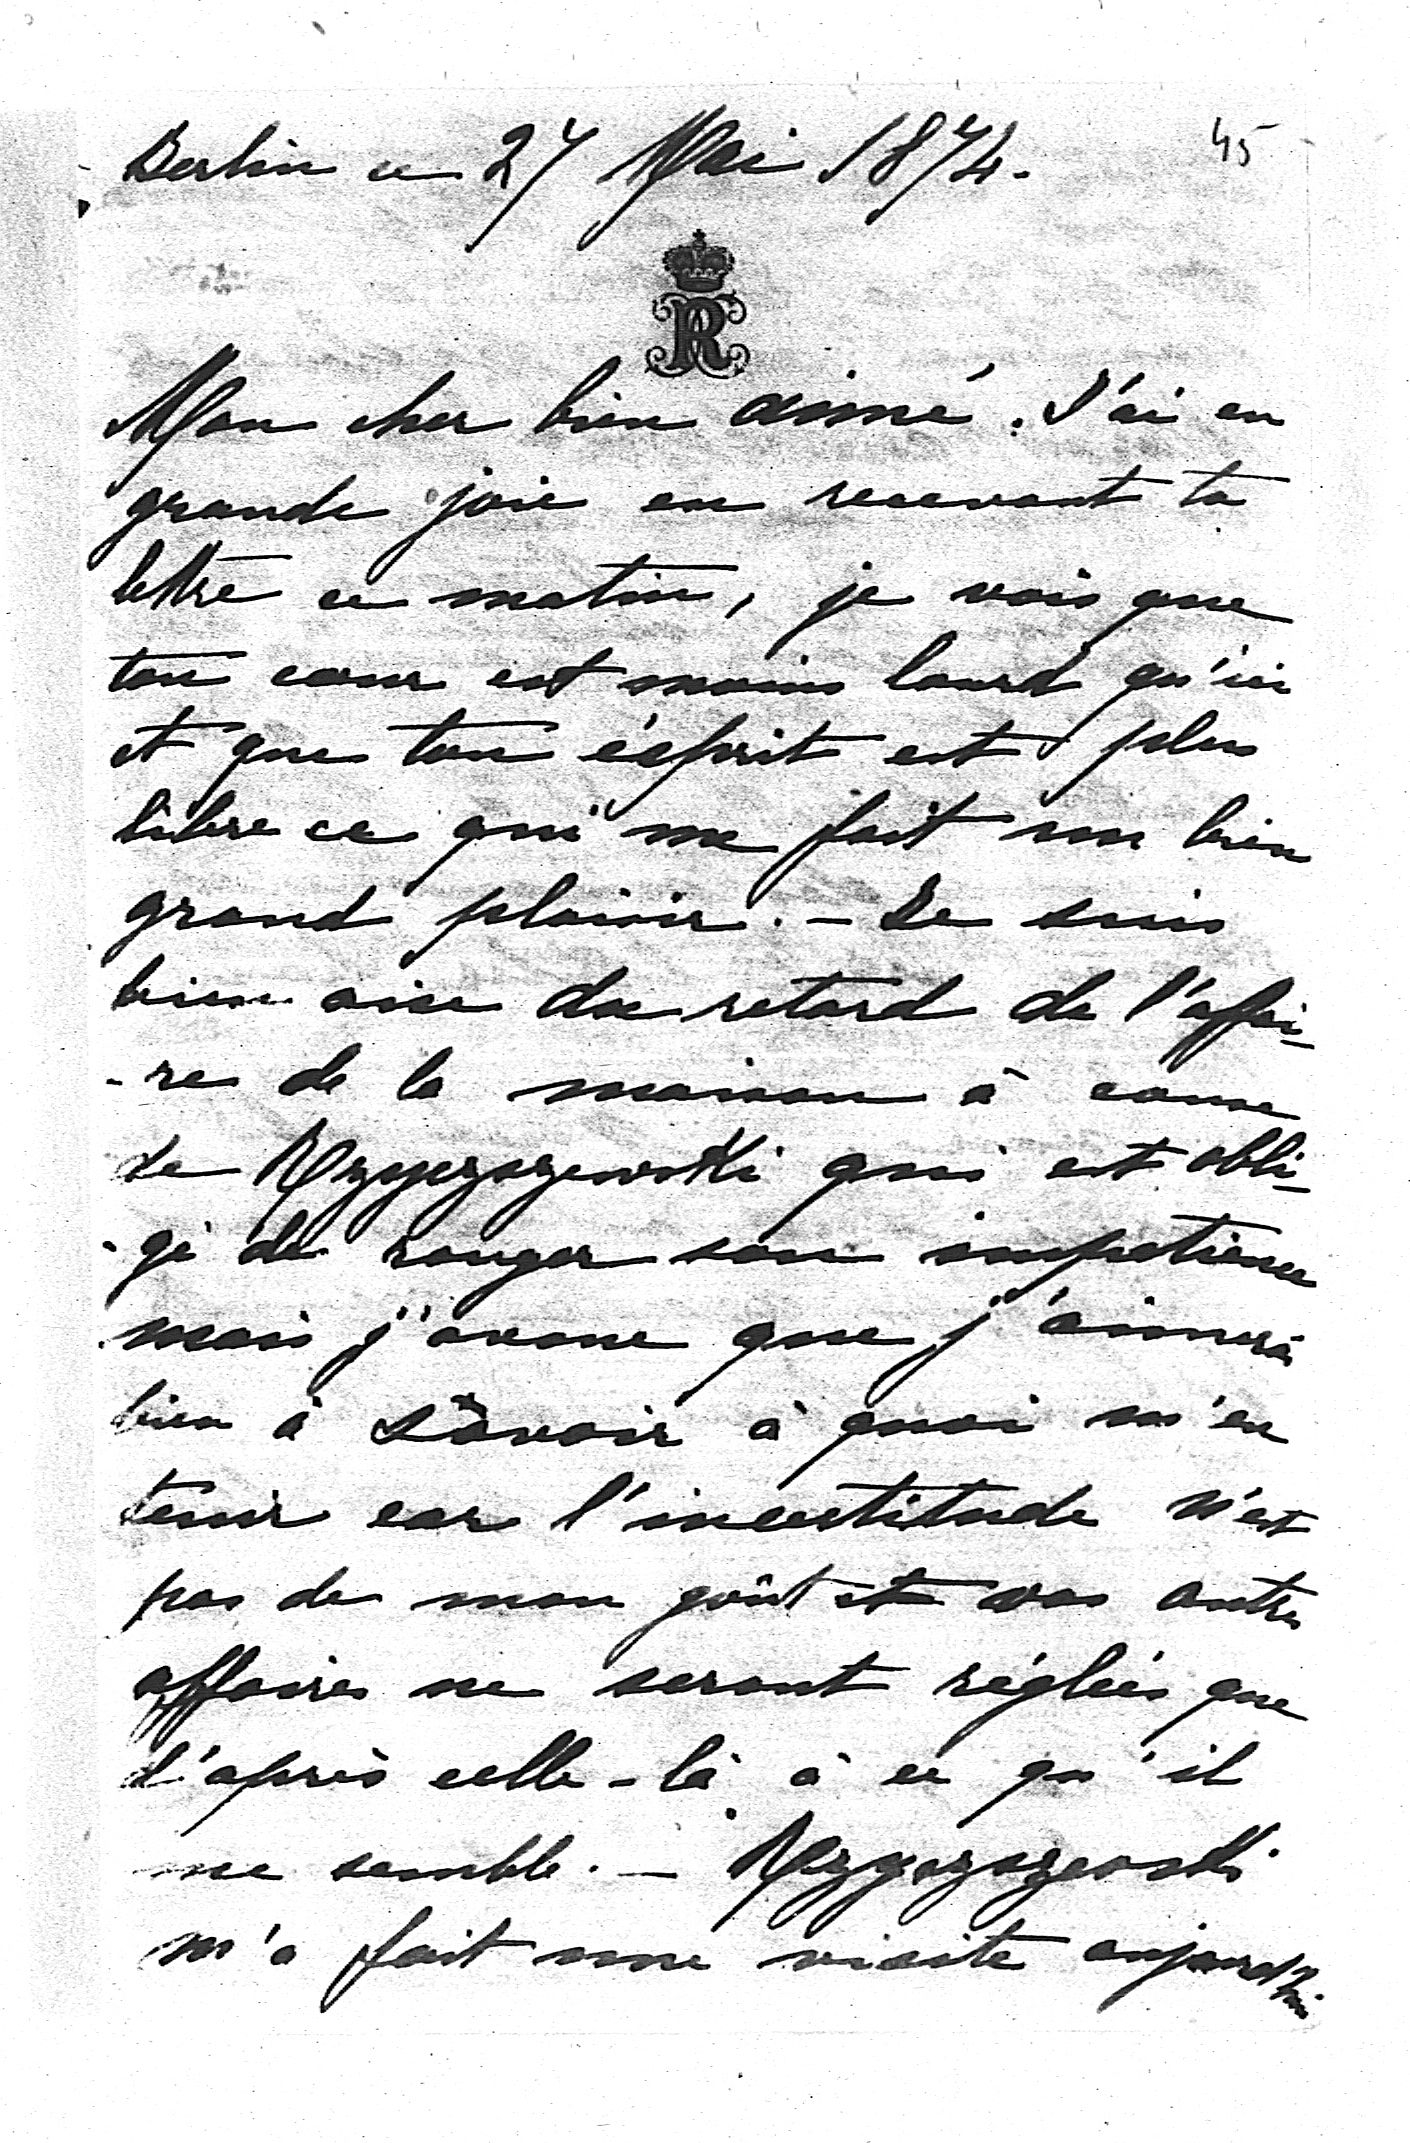 Berlin ce 27 Mai 1874.
45
R
Mon cher bien aimé. J'ai eu
grande joie en recevant ta
lettre ce matin, je vois que
ton cœur est moins lourd qu'ici
et que ton ésprit est plus
libre ce qui me fait un bien
grand plaisir. – Je suis
bien aise du retard de l'affai-
-re de la maison à cause
de qui est obli-
-gé de ronger son impatience
mais j'avoue que j'aimerai
bien à savoir à quoi m'en
tenir car l'incertitude n'est
pas de mon goût et vos autres
affaires ne seront réglées que
d'après celle-là à ce qu'il
me semble. –
m'a fait une visite aujourd'hui